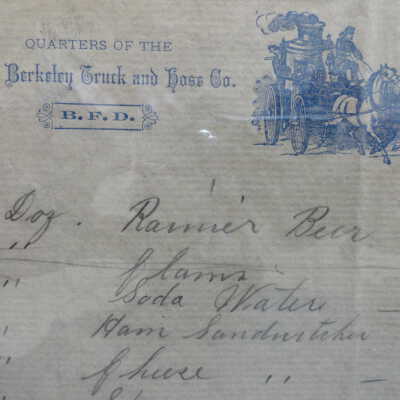 QUARTERS OF THE
Berkeley Truck and Hose Co.
B.F.D.
Doz. Rainier Beer
" Clams
" Soda Water –
" Ham Sandwitches
" Cheese " –